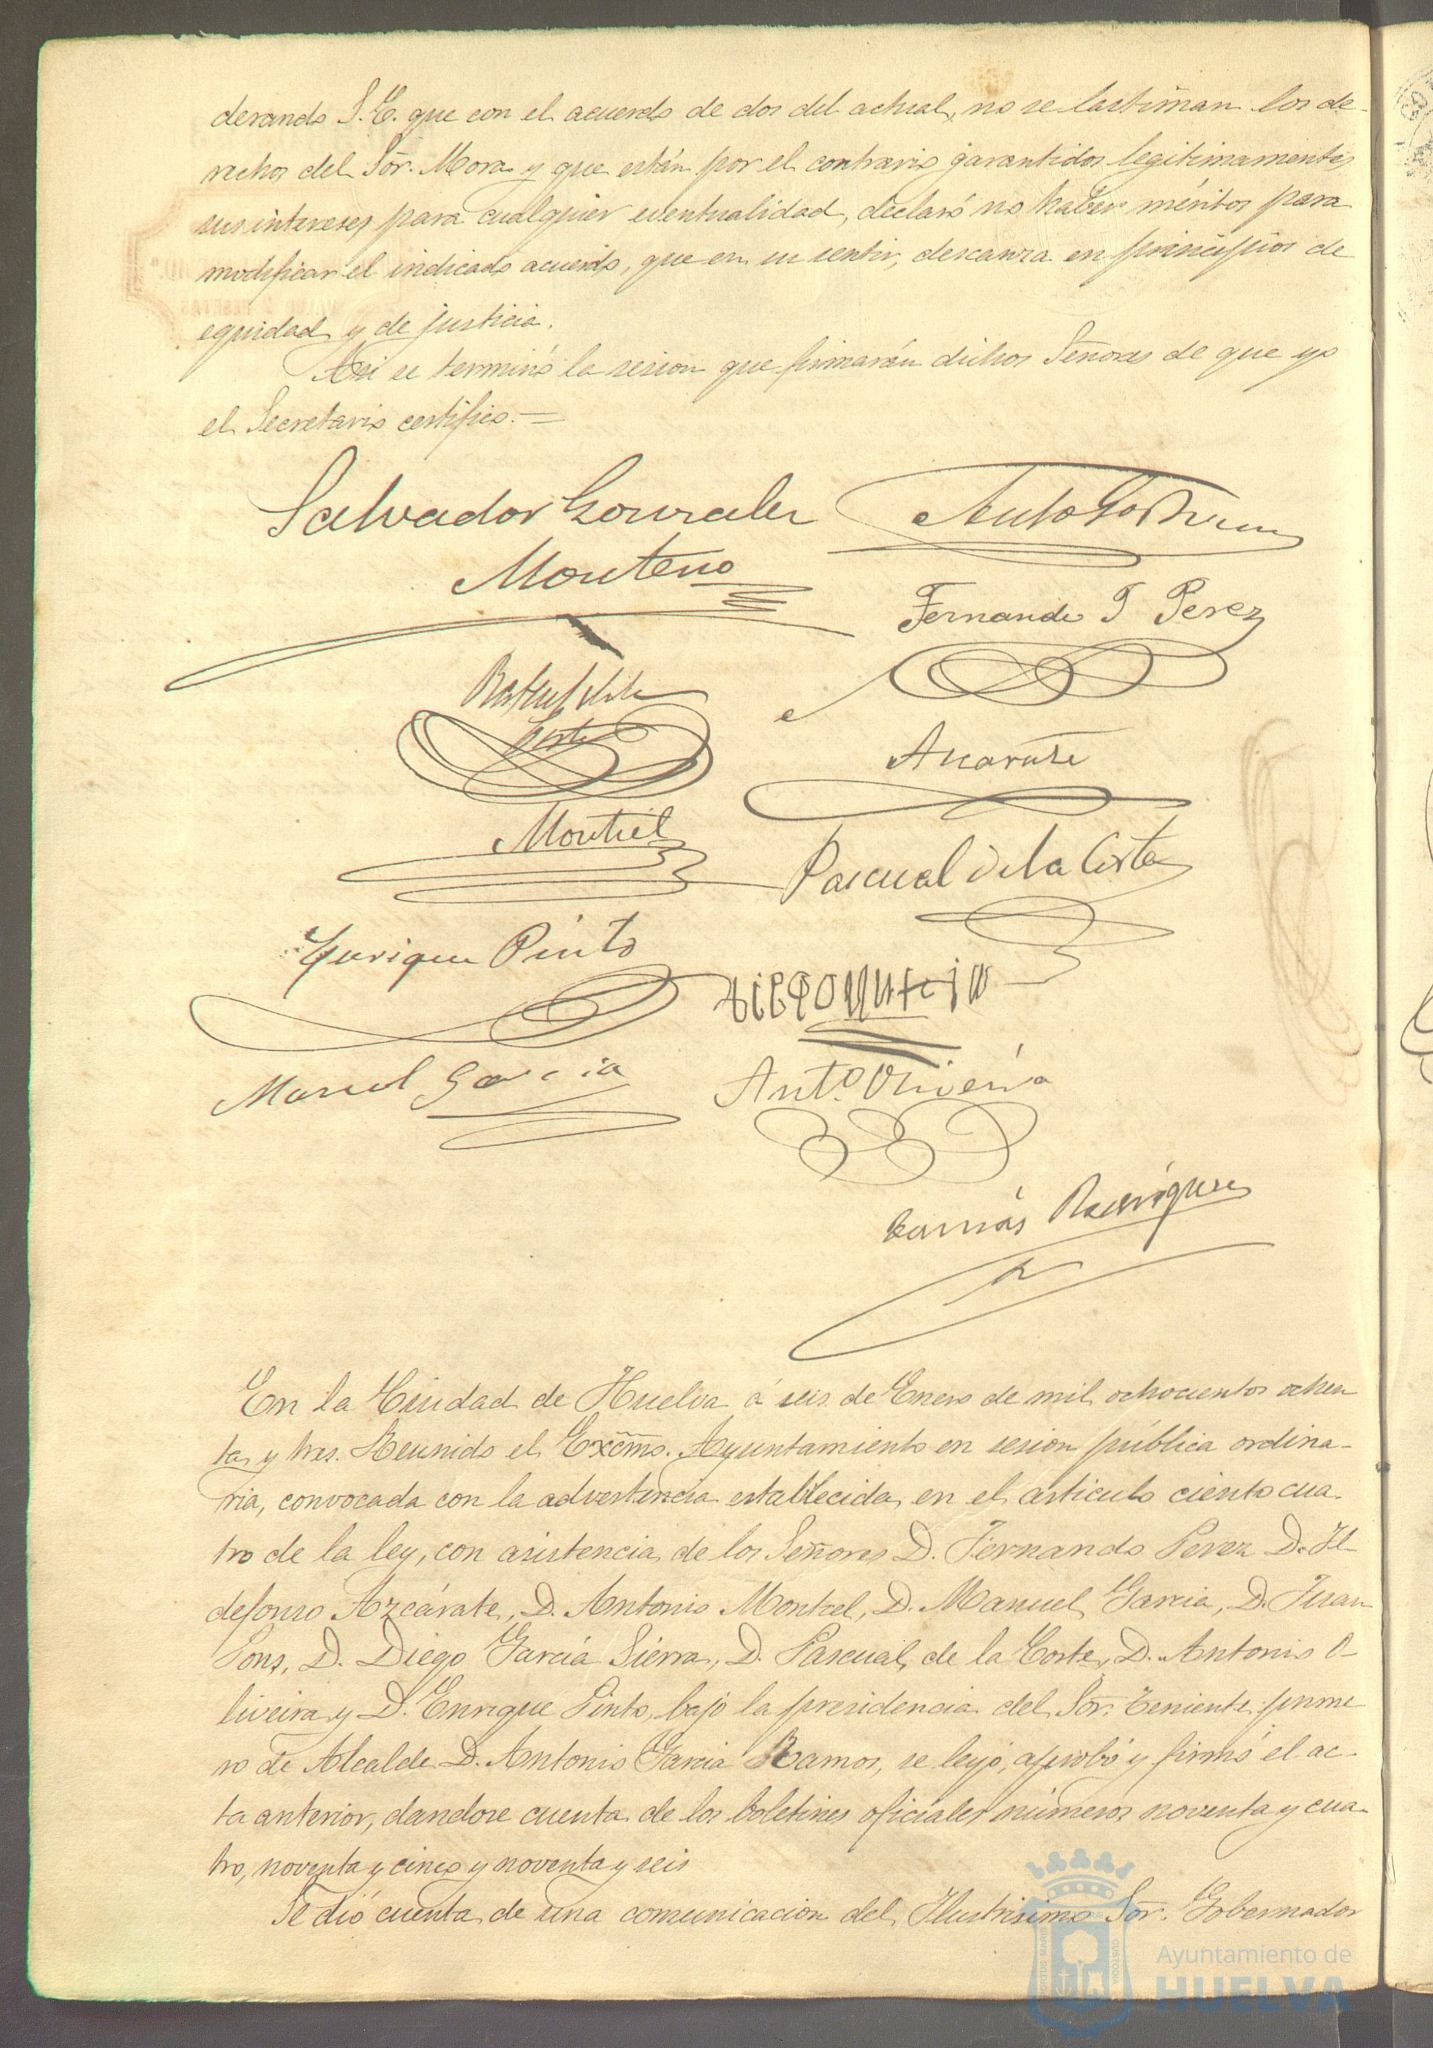 derando S.E. que con el acuerdo de dos del actual, no se lastiman los de-
rechos del Sor. Mora y que están por el contrario garantidos legitimamente
sus intereses para cualquier eventualidad, declaró no haber méritos para
modificar el indicado acuerdo, que en su sentir, descanza en principios de
equidad y de justicia.
Asi se terminó la sesion que firmarán dichos Señores de que yo
el Secretario certifico.=
Salvador Gonzalez
Montero
Fernando T Perez
Azcárate
Montiel
Pascual de la Corte
Enrique Pinto
Manuel Garcia
Ant.º Oliveira
Tomás Rodriguez
En la Ciudad de Huelva á seis de Enero de mil ochocientos ochen
ta y tres. Reunido el Excmo. Ayuntamiento en sesion pública ordina-
ria, convocada con la advertencia establecida en el artículo ciento cua-
tro de la ley, con asistencia de los Señores D. Fernando Perez D. Il-
defonso Azcárate, D. Antonio Montiel, D. Manuel Garcia, D. Juan
Pons, D. Diego García Sierra, D. Pascual de la Corte, D. Antonio O-
liveira y D. Enrique Pinto, bajo la presidencia del Sor. Teniente prime
ro de Alcalde D. Antonio Garcia Ramos, se leyó, aprobó y firmó el ac-
ta anterior, dandose cuenta de los boletines oficiales números noventa y cua-
tro, noventa y cinco y noventa y seis
Se dió cuenta de una comunicacion del Ilustrisimo Sor. Gobernador
Ayuntamiento de
HUELVA